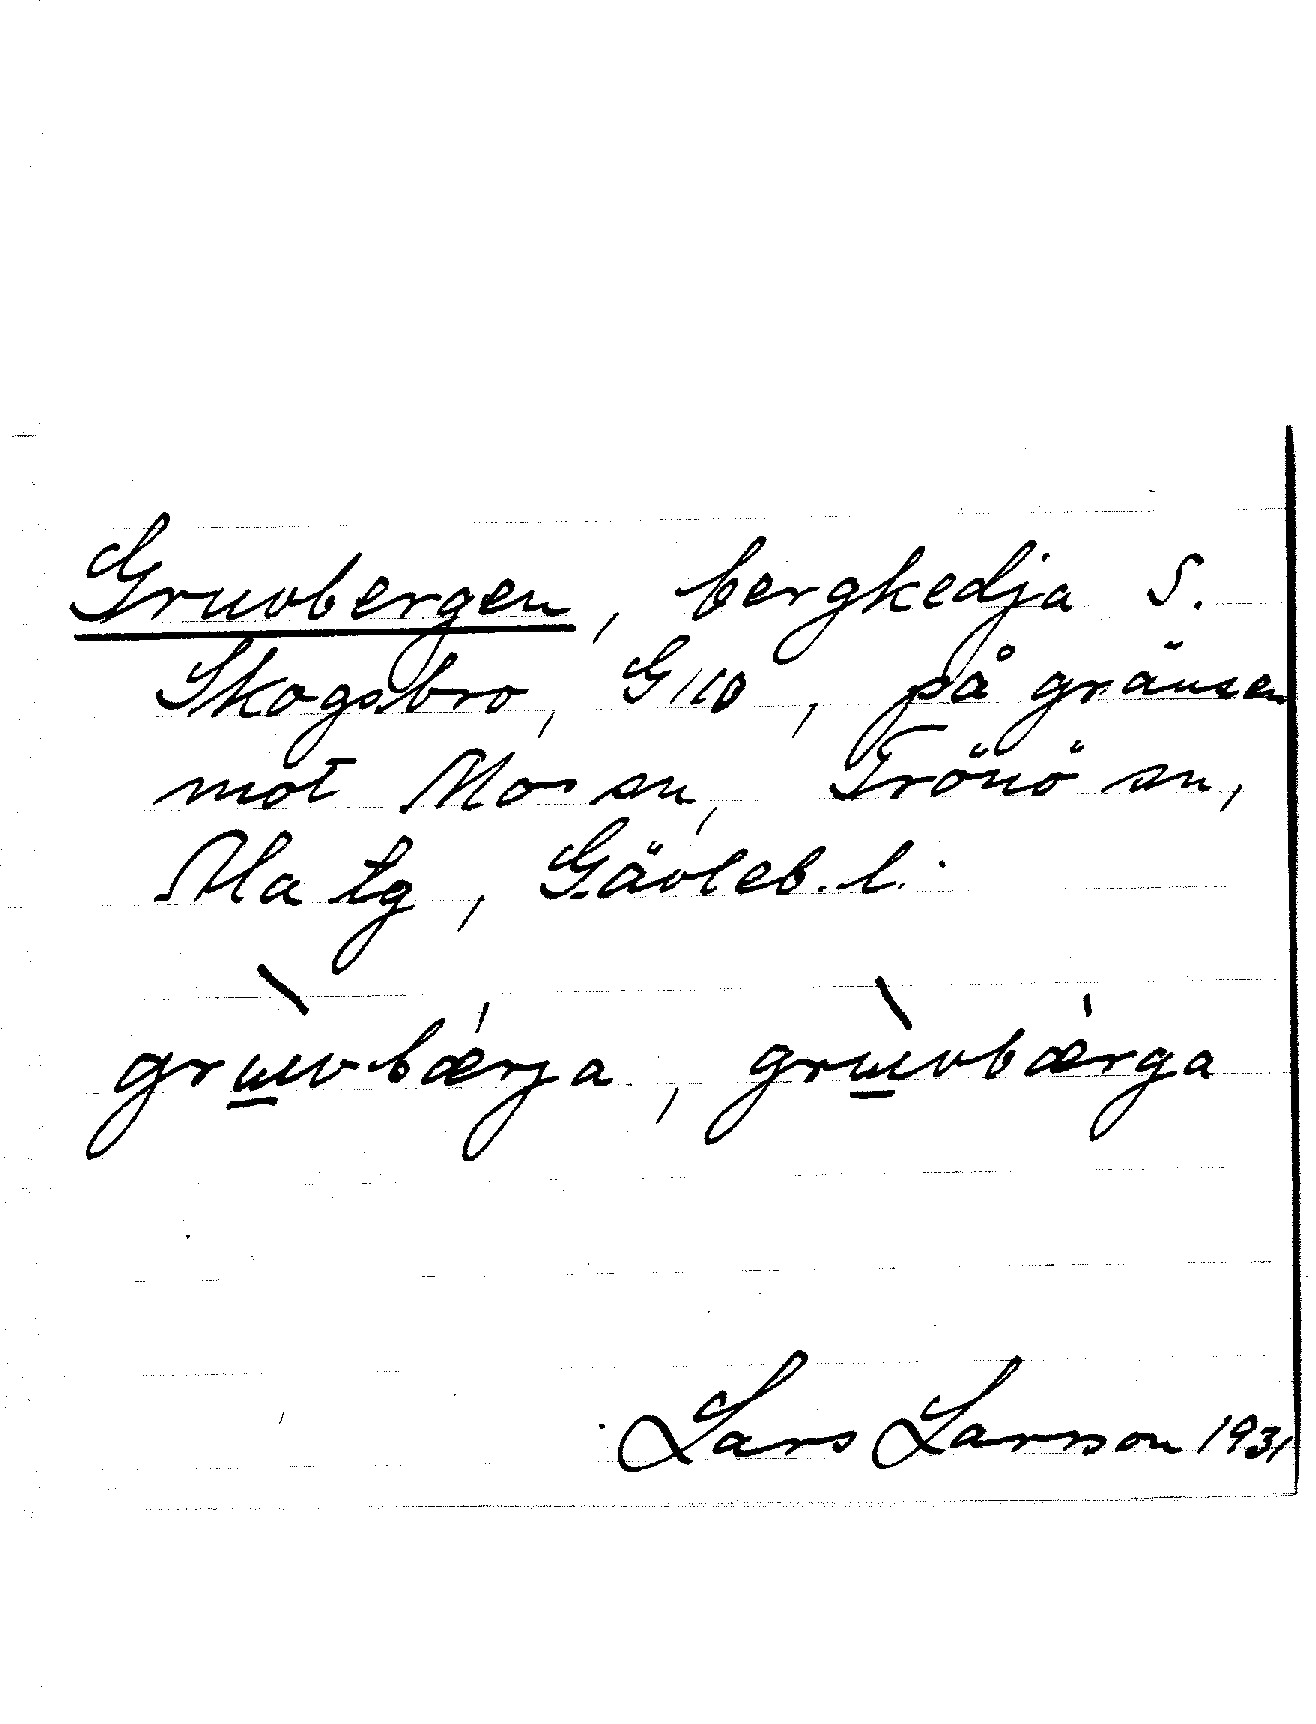 Gruvbergen, bergkedja S.
Skogsbro, G 10, på gränsen
mot Mo sn, Trönö sn,
Ala tg, Gävleb. l.
grɯ̀vbǽrja, grɯ̀vbǽrga
Lars Larsson 1931